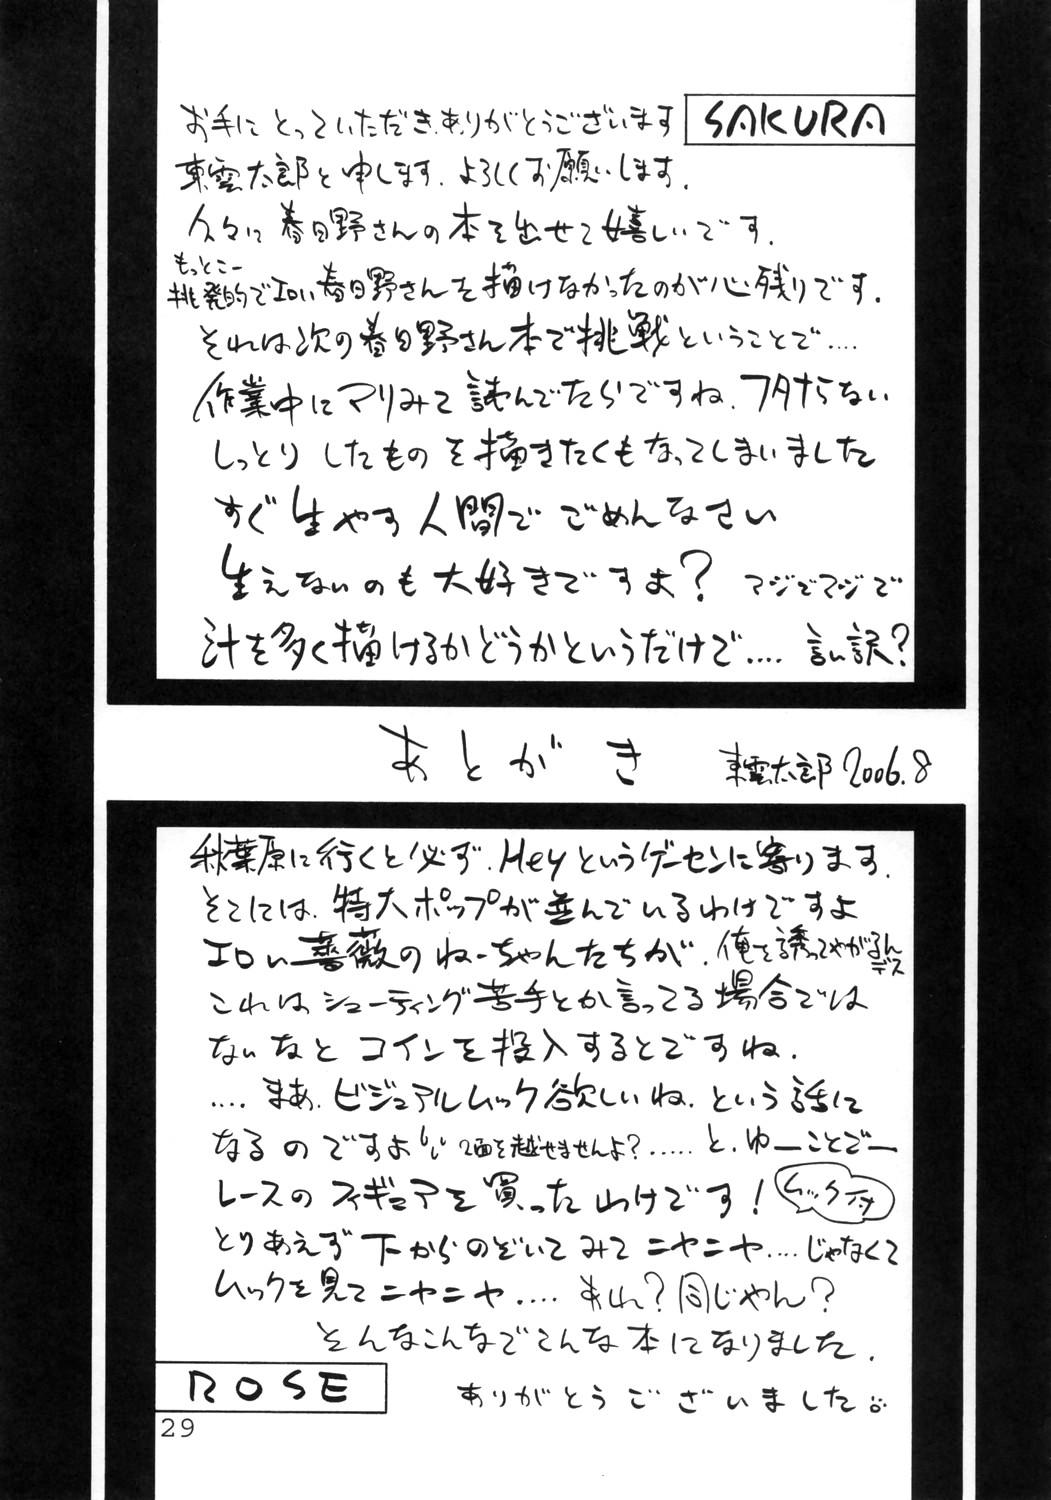 SAKURA
お手にとっていただき、ありがとうございます
東雲太郎と申します。よろしくお願いします。
久々に春日野さんの本を出せて嬉しいです。
もっとこー
挑発的でエロい春日野さんを描けなかったのが心残りです。
それは次の春日野さん本で挑戦ということで‥‥
作業中にマリみて読んでたらですね、フタナらない
しっとりしたものを描きたくもなってしまいました
すぐ生やす人間でごめんなさい
生えないのも大好きですよ? マジでマジで
汁を多く描けるかどうかというだけで‥‥ 言い訳?
あとがき 東雲太郎 2006.8
秋葉原に行くと必ず、Heyというゲーセンに寄ります。
そこには、特大ポップが並んでいるわけですよ
エロい薔薇のねーちゃんたちが、俺を誘ってやがるんデス
これはシューティング苦手とか言ってる場合では
ないなと コインを投入するとですね、
‥‥まあ、ビジュアルムック欲しいね、という話に
なるのですよ 2面を越せませんよ?‥‥‥と、ゆーことでー
レースのフィギュアを買ったわけです! ムック付
とりあえず下からのぞいてみてニヤニヤ‥‥じゃなくて
ムックを見てニヤニヤ‥‥あれ?同じやん?
そんなこんなでこんな本になりました。
ありがとうございました
ROSE
29